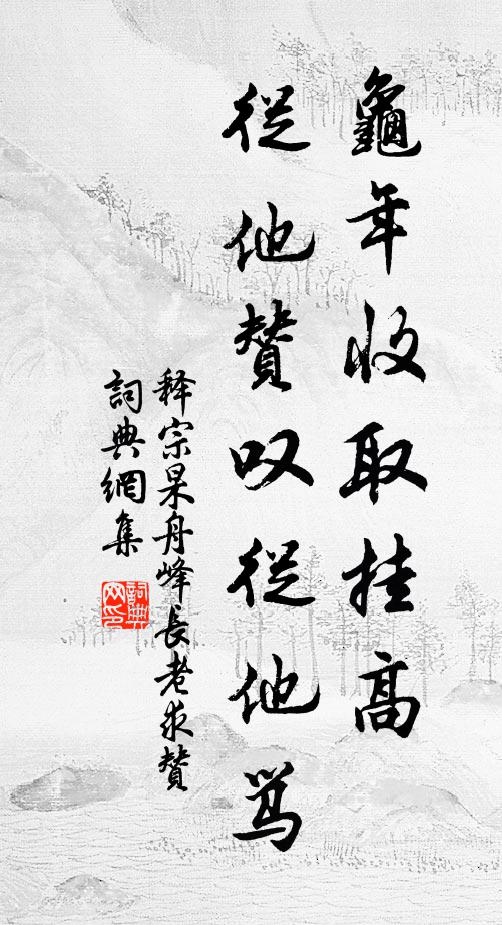 龜年收取挂高
從他贊叹從他骂
释宗杲舟峰長老求贊
詞典網集
詞典
网印